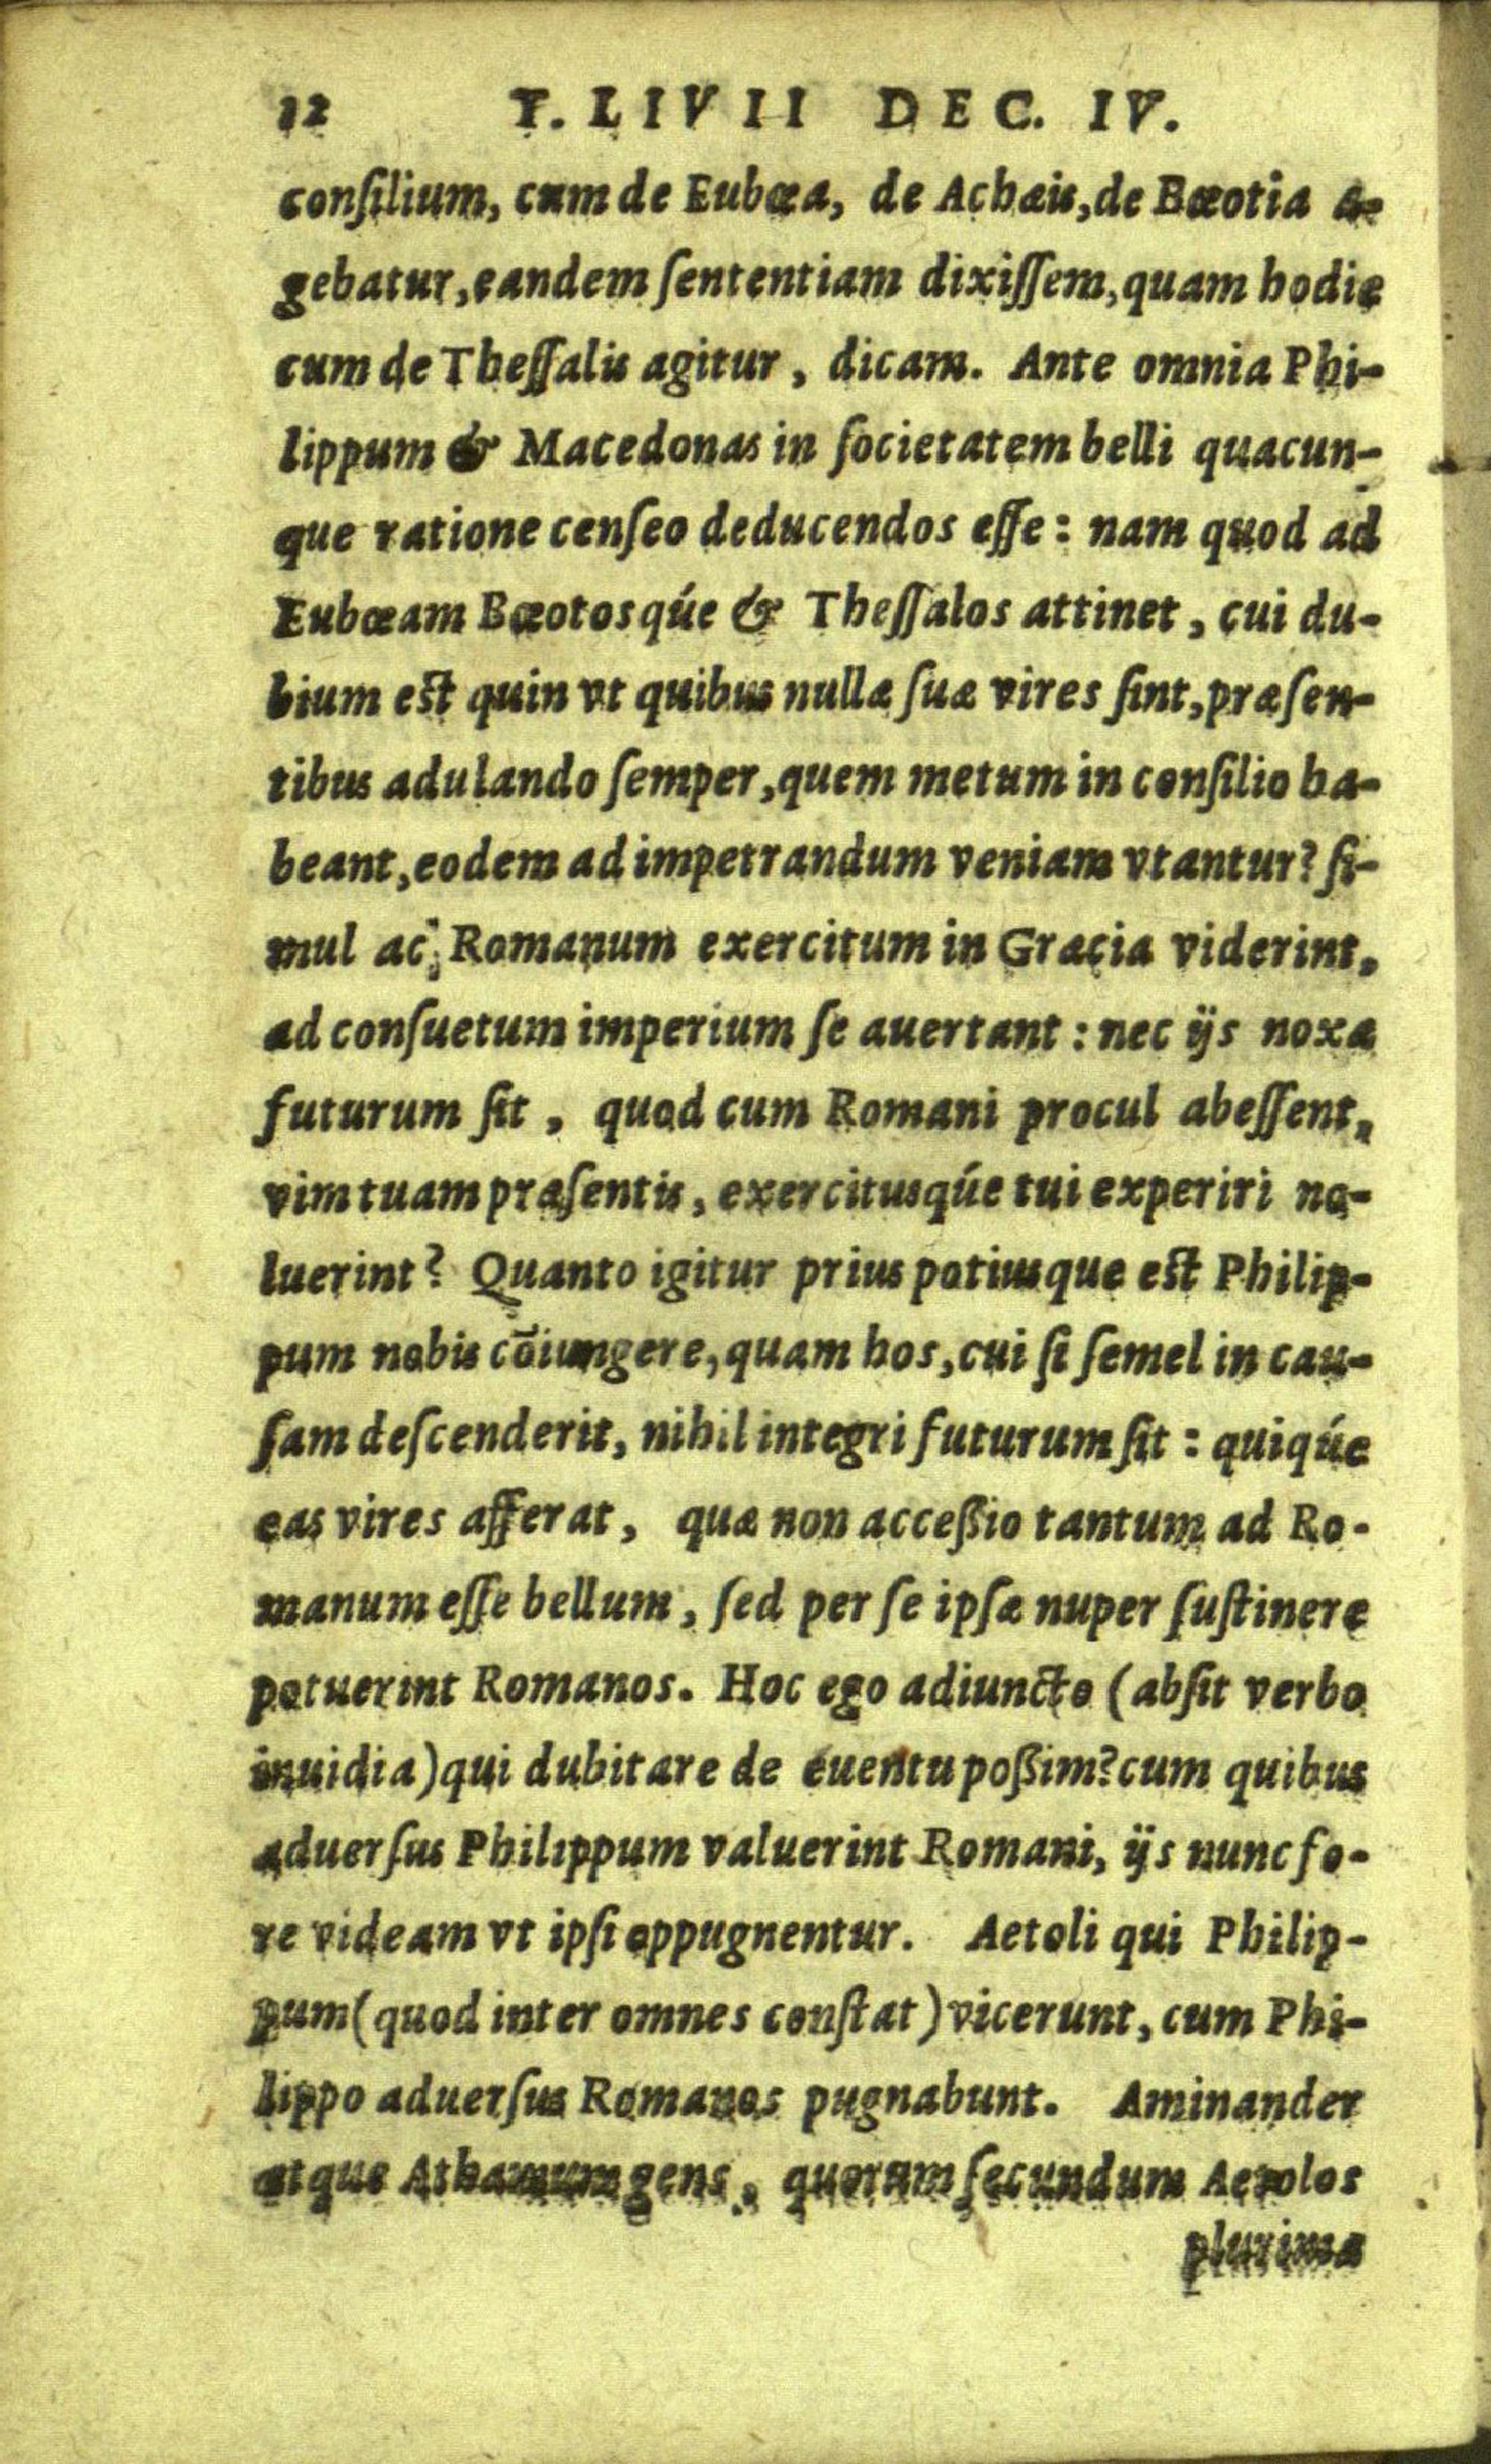 12 T. LIVII DEC. IV.
conſilium, cum de Eubœa, de Achæis, de Bœotia a-
gebatur, eandem ſententiam dixiſſem, quam hodie
cum de Theſſalis agitur, dicam. Ante omnia Phi-
lippum & Macedonas in ſocietatem belli quacun-
que ratione cenſeo deducendos eſſe: nam quod ad
Eubœam Bœotosqúe & Theſſalos attinet, cui du-
bium est quin vt quibus nullæ ſuæ vires ſint, præſen-
tibus adulando ſemper, quem metum in conſilio ha-
beant, eodem ad impetrandum veniam vtantur? ſi-
mul ac, Romanum exercitum in Græcia viderint,
ad conſuetum imperium ſe auertant: nec ijs noxæ
futurum ſit, quod cum Romani procul abeſſent,
vim tuam præſentis, exercitusqúe tui experiri no-
luerint? Quanto igitur prius potiusque est Philip-
pum nobis cōiungere, quam hos, cui ſi ſemel in cau-
ſam deſcenderit, nihil integri futurum ſit: quiqúe
eas vires afferat, quæ non acceßio tantum ad Ro-
manum eſſe bellum, ſed per ſe ipſæ nuper ſuſtinere
potuerint Romanos. Hoc ego adiuncto (abſit verbo
inuidia) qui dubitare de euentu poßim? cum quibus
aduerſus Philippum valuerint Romani, ijs nunc fo-
re videam vt ipſi oppugnentur. Aetoli qui Philip-
pum (quod inter omnes conſtat) vicerunt, cum Phi-
lippo aduerſus Romanos pugnabunt. Aminander
atque Athamum gens, quorum ſecundum Aetolos
plurima